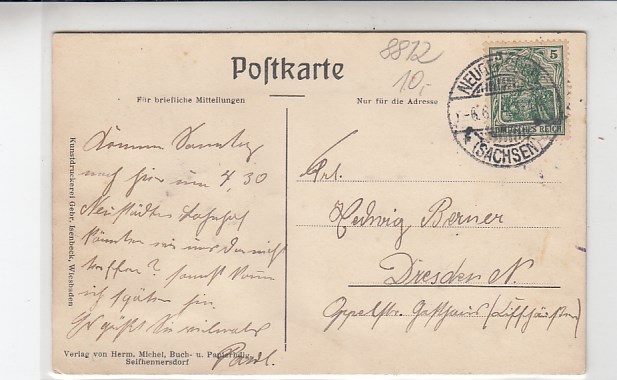 8872
10,-
Postkarte
Für briefliche Mitteilungen
Nur für die Adresse
5
DEUTSCHES REICH
(SACHSEN)
Komme Sonntag
nach hier um 7,30
Neustädter Bahnhof
Könnten wir uns da nicht
treffen? sonst komme
ich später hin
Es grüßt Sie vielmals
Paul.
Frl.
Hedwig Berner
Dresden N.
Oppelstr. Gasthaus
Kunstdruckerei Gebr. Isenbeck, Wiesbaden
Verlag von Herm. Michel, Buch- u. Papierhdlg.
Seifhennersdorf